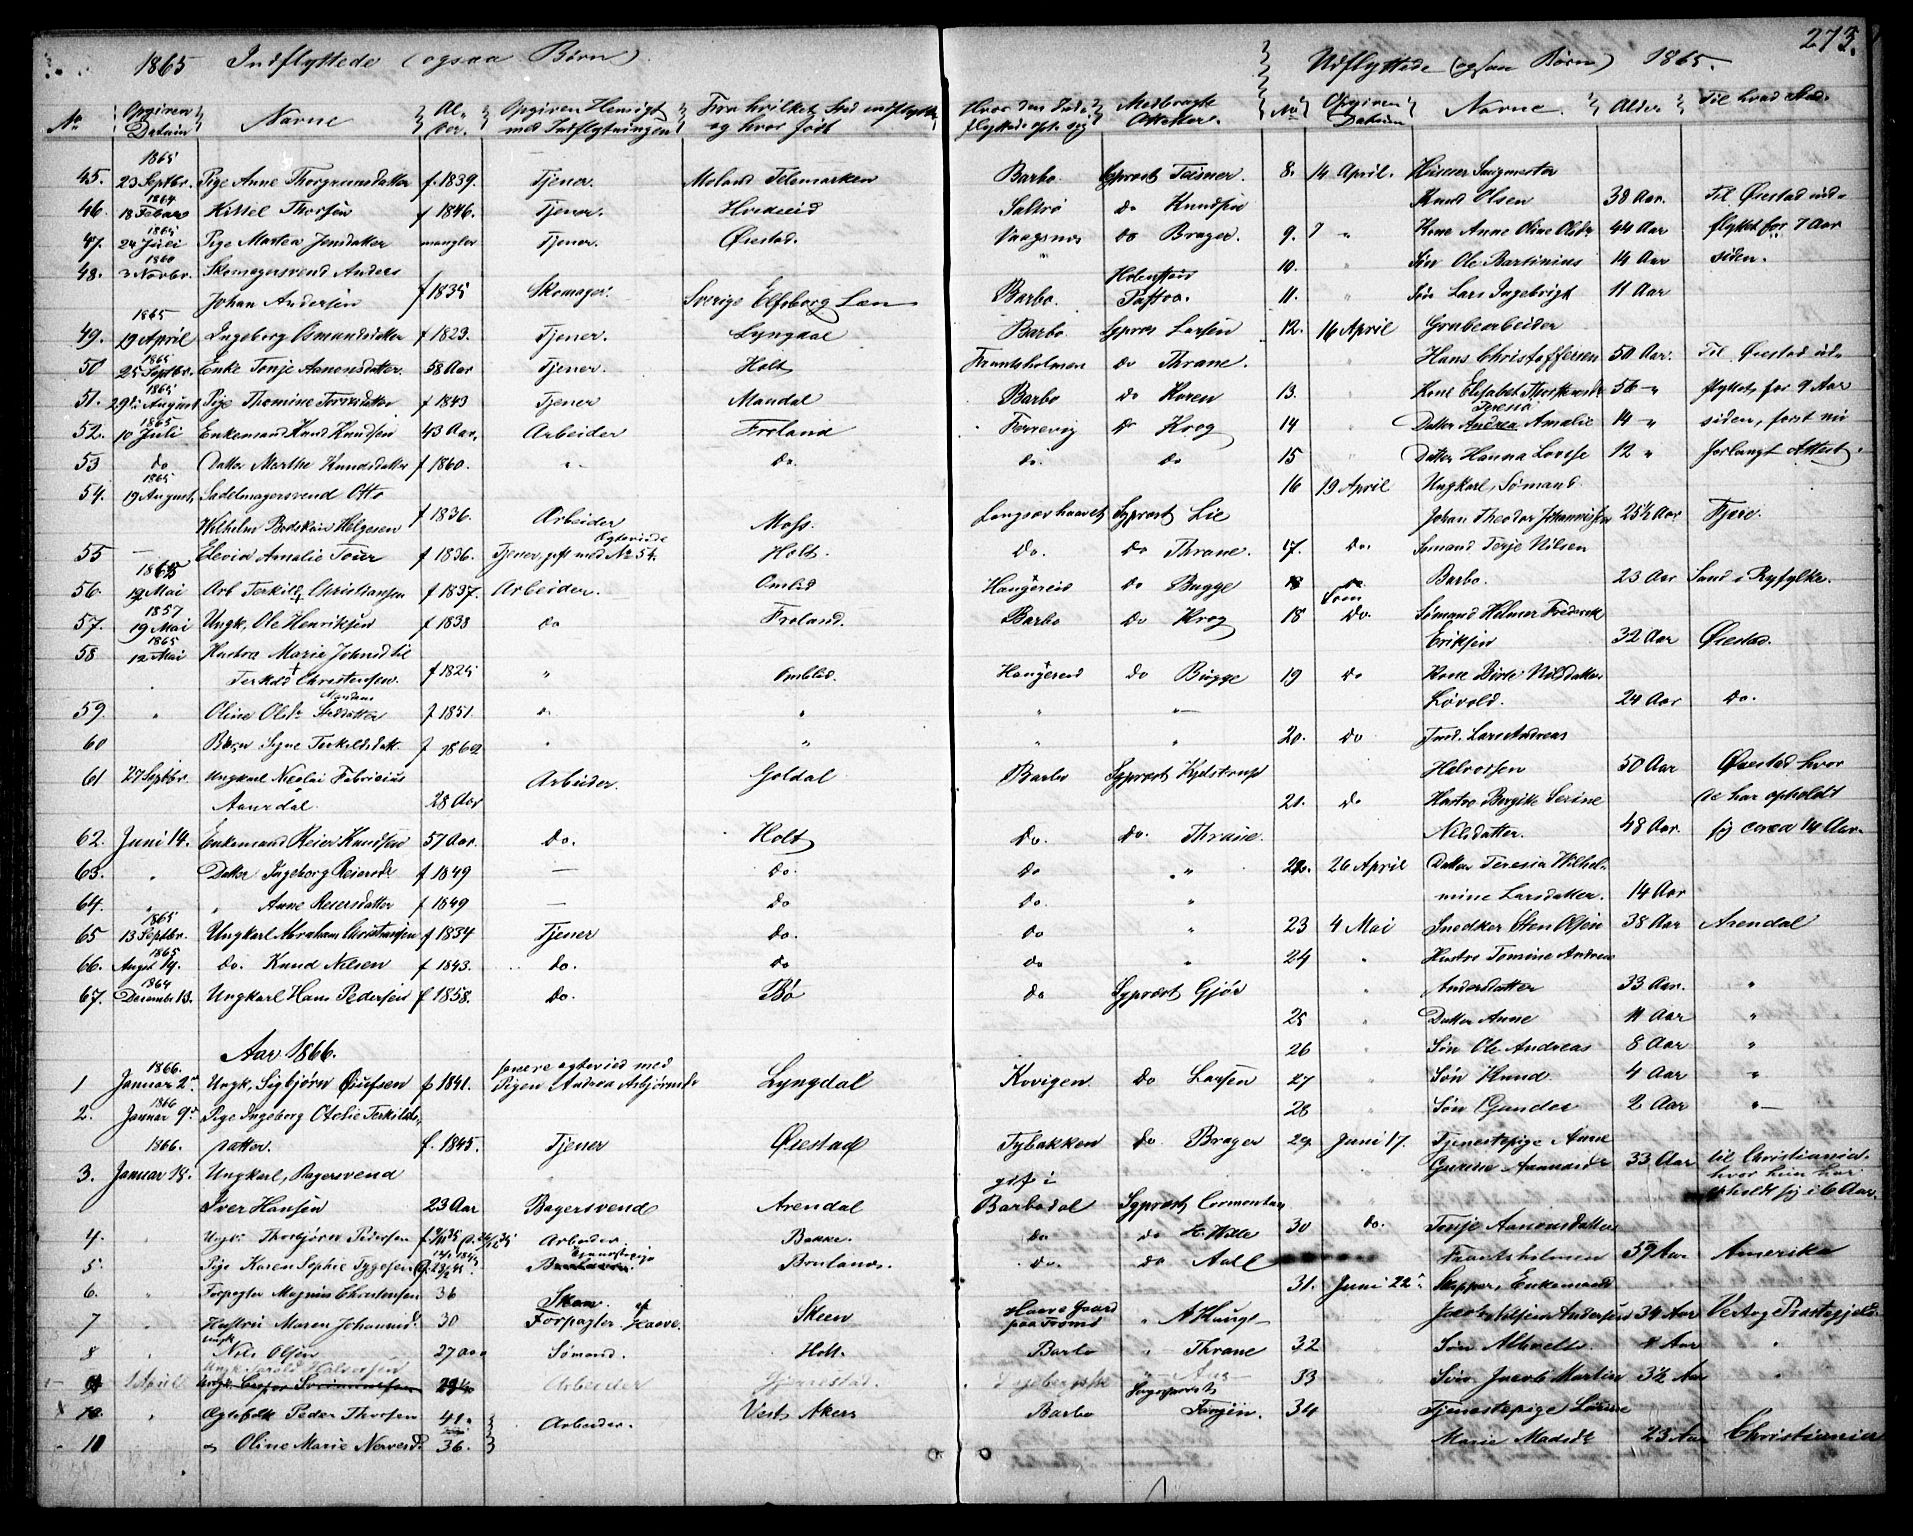 273.
1865 Indflyttede (ogsaa Børn)
No Opgiven Datum Navne Alder. Opgiven Hensigt med Indflytningen Fra hvilket Sted indflyttet og hvor født Hvor den Indflyttede opth. sig Medbragte Attester.
1865
45. 23 Septbr. Pige Anne Thorgrimsdatter f. 1839. Tjener. Moland Telemarken Barbo Sgprest Teisner.
1864
46. 18 Febuar Kittel Thorsen f 1846. Tjener. Hvideseid Saltrø do Knudsen
1865
47. 24 Juli Pige Marten Jensdatter mangler Tjener. Øiestad. Vaagsnes do Brager.
1860
48. 2 Novbr. Skomagersvend Anders
Johan Andersen f 1835 Skomager. Sverige Elfsborg Læn Barbo. Holmstrøm Pastor.
1865
49. 29 April Ingeborg Osmundsdatter f 1823. Tjener. Lyngdal Barbo Sgprest Larsen
1865
50 25 Septbr. Enke Tonje Aanonsdatter. 58 Aar Tjener. Holt Frantsholmen do Thrane.
1865
51. 29de August Pige Thomine Torkilsdatter f 1843 Tjener Mandal Barbo do Koren
1865
52. 10 Juli Enkemand Knud Knudsen 43 Aar. Arbeider Froland Ferrevig do Krog
53 do Datter Marthe Knudsdatter f 1860. " do. do. do
1865
54. 19 August Sadelmagersvend Otto
Wilhelm Bodskin Helgesen f 1836. Arbeider Moss. Langsæ haavet Sgprest Lie
55 — Elevia Amalie Toier f 1836. Tjener, gift med No 54. Holt. Do. do Thrane.
1865
56. 12 Mai Arb Terkild Christiansen f 1837. Arbeider. Omlid Haugereid do Bugge
1857
57. 19 Mai Ungk. Ole Henriksen f 1838 do Froland. Barbo do Krog
1865
58 12 Mai Hustro Marie Johnsd til
Terkild Christensen. f 1825 " Omblid. Haugereid do Bugge
59. " Oline Olsdr f 1851. " " "
60 Barn Signe Terkildsdatt. f 1862 " " " "
61 27 Septbr. Ungkarl Nicolai Fabricius
Aamdal. 28 Aar Arbeider.Holdal Barbo Sgprest Kjelstrup
62. Juni 14. Enkemand Reier Knudsen 57 Aar. do. Holt do. do. Thrane.
63. " Datter Ingeborg Reiersdr f 1849 — do. do "
64. " " Anne Reiersdatter f 1849 — do do. "
1865
65 13 Septbr. Ungkarl Abraham Christiansen f 1834 Tjener do. do "
1865
66. August 19. do. Knud Nilsen f 1843. do. do do "
1864
67. December 13. Ungkarl Hans Pedersen f 1858. do. Bø do Sgprest Gjør
Aar 1866.
1866.
1 Januar 2den Ungk. Sigbjørn Osufsen f 1841. senere egteviet med Pigen Andrea Asbjørnsdr Lyngdal Kovigen do Larsen
1866
2. Januar 9de Pige Ingeborg Otelie Terkilds-
datter. f. 1845. Tjener Øiestad Tybakken do. Brager
1866.
3. Januar 18. Ungkarl, Bagersvend
Iver Hansen 23 Aar Bagersvend Arendal gift i Barbodal Sgprest Cormontan
4. Ungk. Thorbjørn Pedersen Arbeider Bakke. do. do H. Hille
5. Pige Karen Sophie Tygesen Tjenestepige Brulands. do. do Aall
6. " Forpagter Magnus Christensen 36
7 " Hustru Maren Johannsd. 30 Forpagter af Haave. Skeen Haave Gaard paa Tromø " A Hauge
8 " Ungk Nils Olsen 27 Aar Sømand. Holt. Barbo " Thrane
9 1 April Ungk. Harald Halvorsen 29 Arbeider Hjernestad.
10. " Egtefolk Peder Thorsen 41. Arbeider. Vest. Akers Barbo Sogneprest
11 " Oline Marie Neversd. 36.
Udflyttede (ogsaa Børn) 1865.
No Opgiven Datum Navne. Alder Til hvad Sted.
8. 14 April. Knud Olsen 38 Aar. Til Øiestad ud-
9. " Kone Anne Oline Olsdr 44 Aar flyttet for 7 Aar
10. " Søn Ole Bartinius 14 Aar siden.
11. " Søn Lars Ingebrigt 11 Aar
12. 16 April Grubearbeider
Hans Christoffersen 50 Aar. Til Øiestad ud-
13. " Kone Elisabet Thorkensdr 56 " flyttet for 9 Aar
14 " Datter Andrea Teresia Amalie 14 " siden, først nu
15 " Datter Hanna Lovise 12 " forlangt Attest.
16 19 April Ungkarl, Sømand.
Johan Theodor Johannissen 25½ Aar Fjære.
17. do. Sømand Terje Nilsen
Barbo. 23 Aar Sand i Ryfylke.
18 do. Sømand Helmer Frederik
Eriksen 32 Aar Øiestad.
19 do Kone Birte Nilsdatter
Løvold. 24 Aar do.
20. do Tmd. Lars Andreas
Halvorsen 50 Aar Øiestad hvor
21. do Hustro Bergite Serine de har opholdt
Nilsdatter. 48 Aar. sig circa 14 Aar.
22. 26 April Datter Teresia Wilhel-
mine Larsdatter. 14 Aar
23 4 Mai Snedker Sten Olsen 38 Aar Arendal
24 " Hustro Tomine Andrea
Andersdatter 33 Aar. "
25 " Datter Anne 11 Aar "
26 Søn Ole Andreas 8 Aar "
27 " Søn Knud 4 Aar "
28 " Søn Gunder 2 Aar "
29. Juni 17. Tjenestepige Anne
Gurine Aanonsdr 33 Aar til Christiania hvor hun har opholdt sig i 6 Aar.
30 do. Tonje Aanonsdatter
Frantsholmen 59 Aar Amerika
31. Juni 22de Skipper, Enkemand
Jacob Nilsen Andersen 34 Aar Vertog Prestegjeld.
32 Søn Athvells Aar "
33 Søn Jacob Martin 3½ Aar "
34 Tjenestepige Lovise
Marie Madsdr 23 Aar Christiania